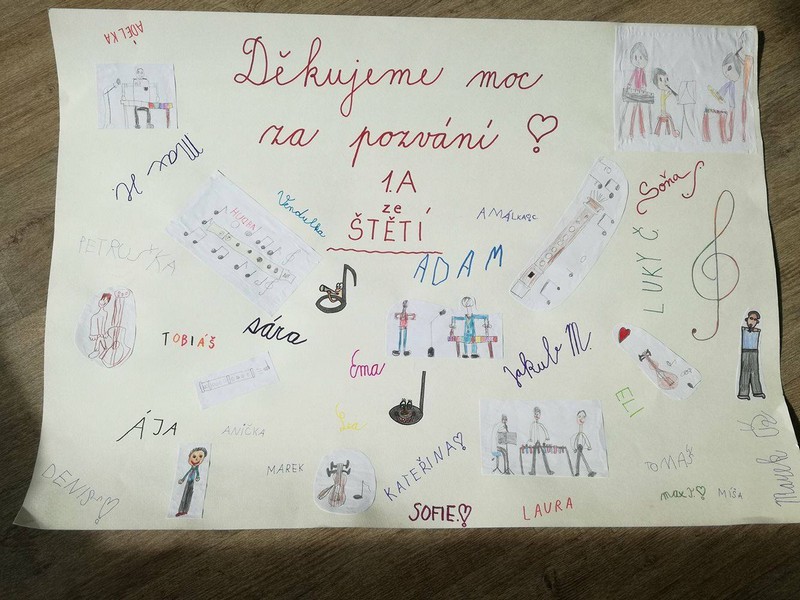 ADÉLKA
Děkujeme moc
za pozvání
1.A
ze
ŠTĚTÍ
Max H.
Vendulka
AMÁLKABC
Soňa
PETRUŠKA
ADAM
LUKY Č
TOBIÁŠ
sára
Ema
Jakub M.
ELI
ÁJA
ANIČKA
KATEŘINA
TOMÁŠ
DENIS
MAREK
SOFIE
LAURA
MÍŠA
Marek